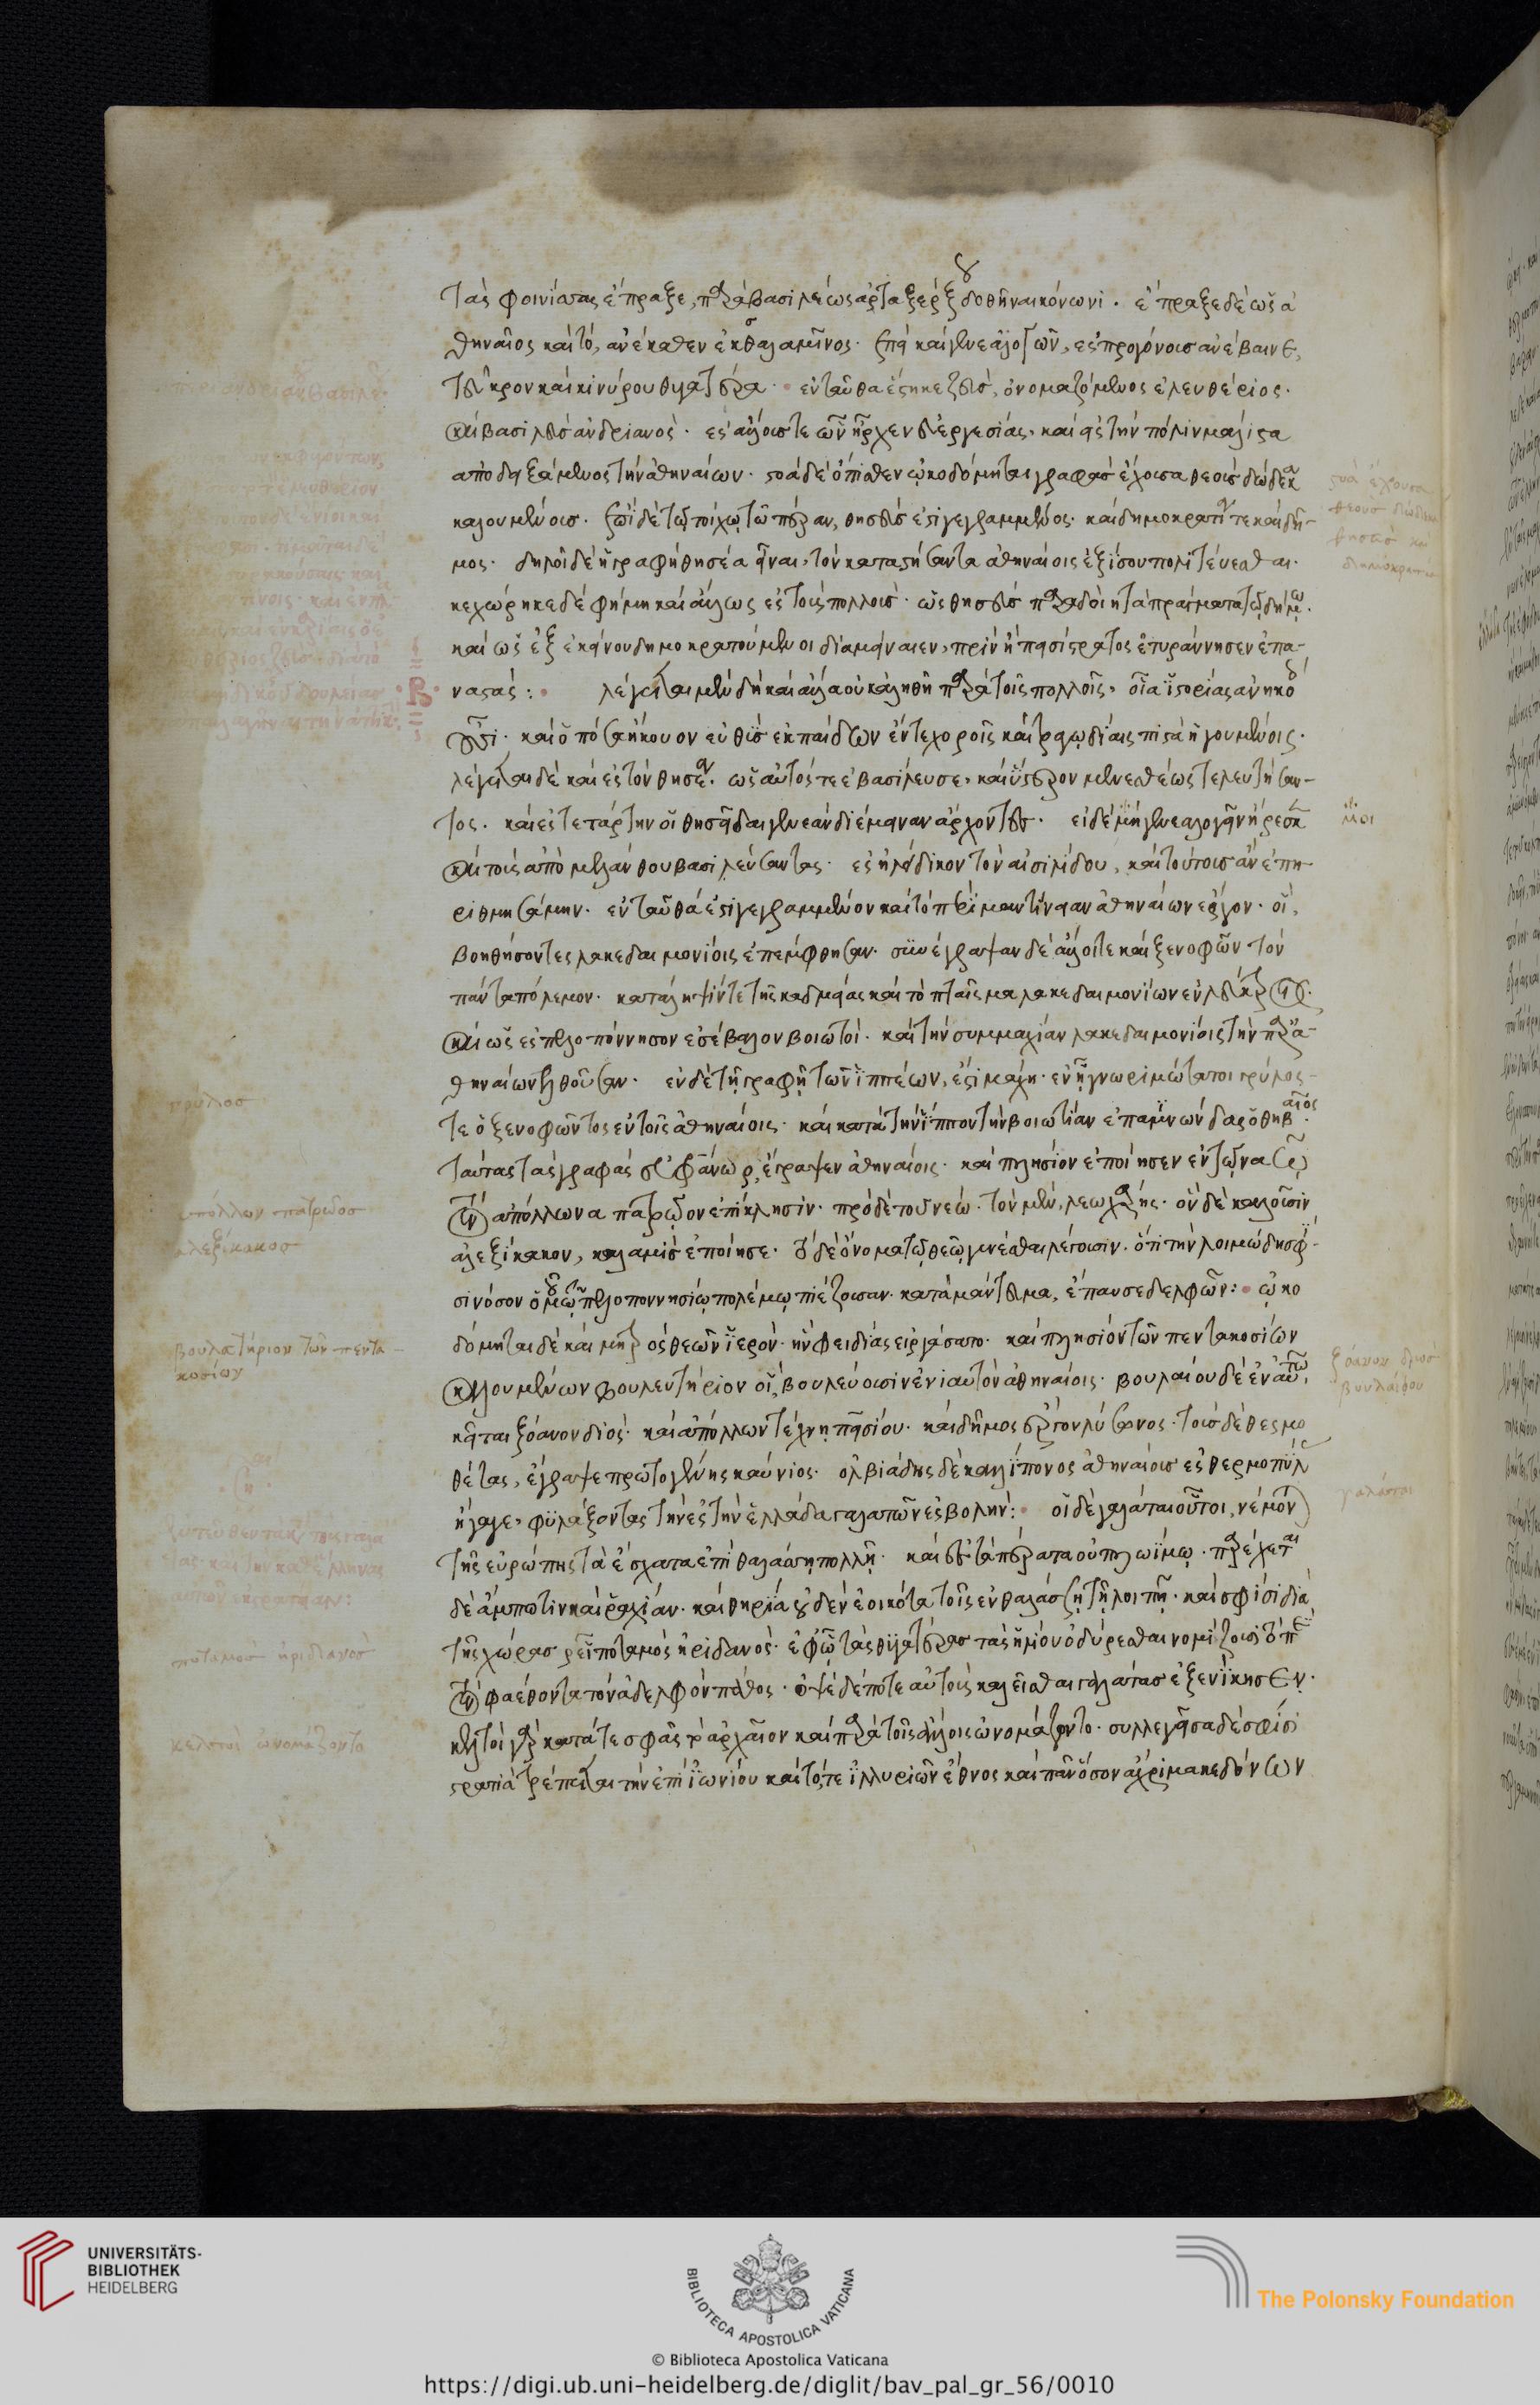 τὰς φοινίσσας ἔπραξε, παρὰ βασιλέως ἀρταξέρξου δοθῆναι κόνωνι. ἔπραξε δὲ ὡς ἀ
θηναῖος καὶ τὸ, ἀνέκαθεν ἐκ σαλαμῖνος. ἐπεὶ καὶ γενεαλογῶν, ἐς προγόνους ἀνέβαινε,
τεῦκρον καὶ κινύρου θυγατέρα. ἐνταῦθα ἕστηκε ζεὺς, ὀνομαζόμενος ἐλευθέριος.
καὶ βασιλεὺς ἀνδριανός. ἐς ἄλλους τε ὧν ἦρχεν εὐεργεσίας, καὶ ἐς τὴν πόλιν μάλιστα
ἀποδειξάμενος τὴν ἀθηναίων. στοὰ δὲ ὄπισθεν ᾠκοδόμηται γραφὰς ἔχουσα θεοὺς δώδεκα
καλουμένους. ἐπὶ δὲ τῷ τοίχῳ τῷ πέραν, θησεύς ἐστι γεγραμμένος. καὶ δημοκρατία τε καὶ δῆ-
μος. δηλοῖ δὲ ἡ γραφὴ θησέα εἶναι, τὸν καταστήσαντα ἀθηναίοις ἐξ ἴσου πολιτεύεσθαι.
κεχώρηκε δὲ φήμη καὶ ἄλλως ἐς τοὺς πολλοὺς. ὡς θησεὺς παραδοίη τὰ πράγματα τῷ δήμῳ.
καὶ ὡς ἐξ ἐκείνου δημοκρατούμενοι διαμείναιεν, πρὶν ἢ πεισίστρατος ἐτυράννησεν ἐπα-
ναστάς: λέγεται μὲν δὴ καὶ ἄλλα οὐκ ἀληθῆ παρὰ τοῖς πολλοῖς, οἷα ἱστορίας ἀνηκόοις
οὖσι. καὶ ὁπόσα ἤκουον εὐθὺς ἐκ παίδων ἔν τε χοροῖς καὶ τραγῳδίαις πιστὰ ἡγουμένοις.
λέγεται δὲ καὶ ἐς τὸν θησέα. ὡς αὐτός τε ἐβασίλευσε, καὶ ὕστερον μενεσθέως τελευτήσαν-
τος. καὶ ἐς τετάρτην οἱ θησεῖδαι γενεὰν διέμειναν ἄρχοντες. εἰ δέ μοι γενεαλογεῖν ἤρεσκε
καὶ τοὺς ἀπὸ μελάνθου βασιλεύσαντας. ἐς κλείδικον τὸν αἰσιμίδου, καὶ τούτους ἂν ἐπη-
ριθμησάμην. ἐνταῦθά ἐστι γεγραμμένον καὶ τὸ περὶ μαντίνειαν ἀθηναίων ἔργον. οἵ,
βοηθήσοντες λακεδαιμονίοις ἐπέμφθησαν. συνέγραψαν δὲ ἄλλοι τε καὶ ξενοφῶν τὸν
πάντα πόλεμον. κατάληψίν τε τῆς καδμείας καὶ τὸ πταῖσμα λακεδαιμονίων ἐν λεύκτροις.
καὶ ὡς ἐς πελοπόννησον ἐσέβαλον βοιωτοὶ. καὶ τὴν συμμαχίαν λακεδαιμονίοις τὴν παρὰ
θηναίων ἐλθοῦσαν. ἐν δὲ τῇ γραφῇ τῶν ἱππέων, ἐστι μάχη. ἐν ᾗ γνωριμώτατοι γρύλος
τε ὁ ξενοφῶντος ἐν τοῖς ἀθηναίοις. καὶ κατὰ τὴν ἵππον τὴν βοιωτίαν ἐπαμινώνδας ὁ θηβαῖος.
ταύτας τὰς γραφὰς εὐφράνωρ, ἔγραψεν ἀθηναίοις. καὶ πλησίον ἐποίησεν ἐν τῷ ναῷ
τὸν ἀπόλλωνα πατρῷον ἐπίκλησιν. πρὸ δὲ τοῦ νεώ. τὸν μὲν, λεωχάρης. ὃν δὲ καλοῦσιν
ἀλεξίκακον, κάλαμις ἐποίησε. τὸ δὲ ὄνομα τῷ θεῷ γενέσθαι λέγουσιν. ὅτι τὴν λοιμώδη σφί-
σι νόσον ὁμοῦ τῷ πελοποννησίῳ πολέμῳ πιέζουσαν. κατὰ μάντευμα, ἔπαυσε δελφῶν: ᾠκο
δόμηται δὲ καὶ μητρὸς θεῶν ἱερόν. ἣν φειδίας εἰργάσατο. καὶ πλησίον τῶν πεντακοσίων
καλουμένων βουλευτήριον οἳ, βουλεύουσιν ἐνιαυτὸν ἀθηναίοις. βουλαίου δὲ ἐν αὐτῷ,
κεῖται ξόανον διός. καὶ ἀπόλλων τέχνη πεισίου. καὶ δῆμος ἔργον λύσωνος. τοὺς δὲ θεσμο
θέτας, ἔγραψε πρωτογένης καύνιος. ὀλβιάδης δὲ κάλλιππον ὃς ἀθηναίους ἐς θερμοπύλας
ἤγαγε, φυλάξοντας τὴν ἐς τὴν ἑλλάδα γαλατῶν ἐσβολήν: οἱ δὲ γαλάται οὗτοι, νέμονται
τῆς εὐρώπης τὰ ἔσχατα ἐπὶ θαλάσσῃ πολλῇ. καὶ ἐς τὰ πέρατα οὐ πλωΐμῳ. παρέχεται
δὲ ἄμπωτιν καὶ ῥαχίαν. καὶ θηρία οὐδὲν ἐοικότα τοῖς ἐν θαλάσσῃ τῇ λοιπῇ. καί σφισι διὰ
τῆς χώρας ῥεῖ ποταμὸς ἠριδανός. ἐφ' ᾧ τὰς θυγατέρας τὰς ἡλίου ὀδύρεσθαι νομίζουσι τὸ περὶ
τὸν φαέθοντα τὸν ἀδελφὸν πάθος. ὀψὲ δέ ποτε αὐτοὺς καλεῖσθαι γαλάτας ἐξενίκησεν.
κελτοὶ γὰρ κατά τε σφᾶς τὸ ἀρχαῖον καὶ παρὰ τοῖς ἄλλοις ὠνομάζοντο. συλλεγεῖσα δέ σφισι
στρατιὰ τρέπεται τὴν ἐπὶ ἰωνίου καὶ τό τε ἰλλυριῶν ἔθνος καὶ πᾶν ὅσον ἄχρι μακεδόνων
μοι
στοὰ ἔχουσα
θεοὺς δώδεκα
θησεὺς καὶ
δημοκρατία
γρύλος
ἀπόλλων πατρῶος
ἀλεξίκακος
βουλευτήριον τῶν πεντα-
κοσίων
ξόανον διὸς
βουλαίου
γαλάται
ποταμὸς ἠριδανὸς
κελτοὶ ὠνομάζοντο
UNIVERSITÄTS-
BIBLIOTHEK
HEIDELBERG
BIBLIOTECA APOSTOLICA VATICANA
The Polonsky Foundation
© Biblioteca Apostolica Vaticana
https://digi.ub.uni-heidelberg.de/diglit/bav_pal_gr_56/0010